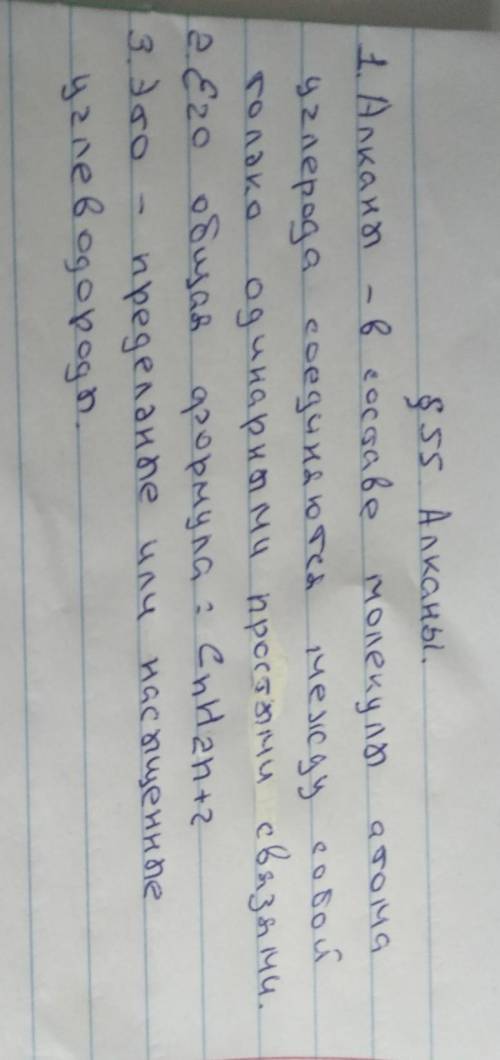 § 55 Алканы.
1. Алканы - в составе молекулы атома
углерода соединяются между собой
только одинарными простыми связями.
2. Его общая формула: CnH2n+2
3. Это - предельные или насыщенные
углеводороды.